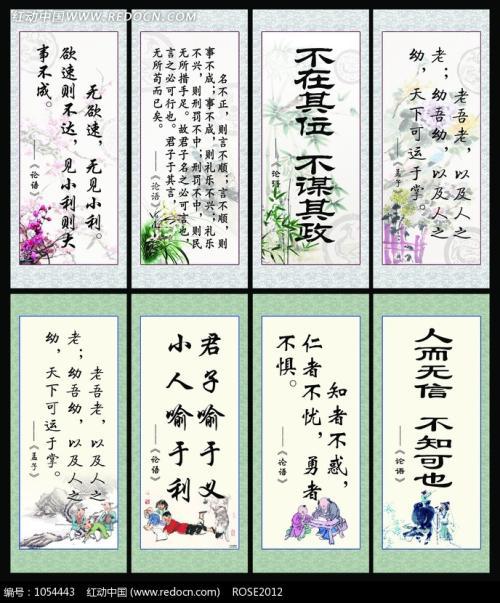 红动中国 WWW.REDOCN.COM
无欲速，无见小利。
欲速则不达，见小利则大
事不成。
——《论语》
名不正，则言不顺；言不顺，则
事不成；事不成，则礼乐不兴；礼乐
不兴，则刑罚不中；刑罚不中，则民
无所措手足。故君子名之必可言也，
言之必可行也。君子于其言，
无所苟而已矣。
——《论语》
不在其位 不谋其政
——《论语》
老吾老，以及人之
老；幼吾幼，以及人之
幼，天下可运于掌。
——《孟子》
老吾老，以及人之
老；幼吾幼，以及人之
幼，天下可运于掌。
——《孟子》
君子喻于义
小人喻于利
——《论语》
知者不惑，
仁者不忧，勇者
不惧。
——《论语》
人而无信 不知可也
——《论语》
编号：1054443 红动中国 (www.redocn.com) ROSE2012